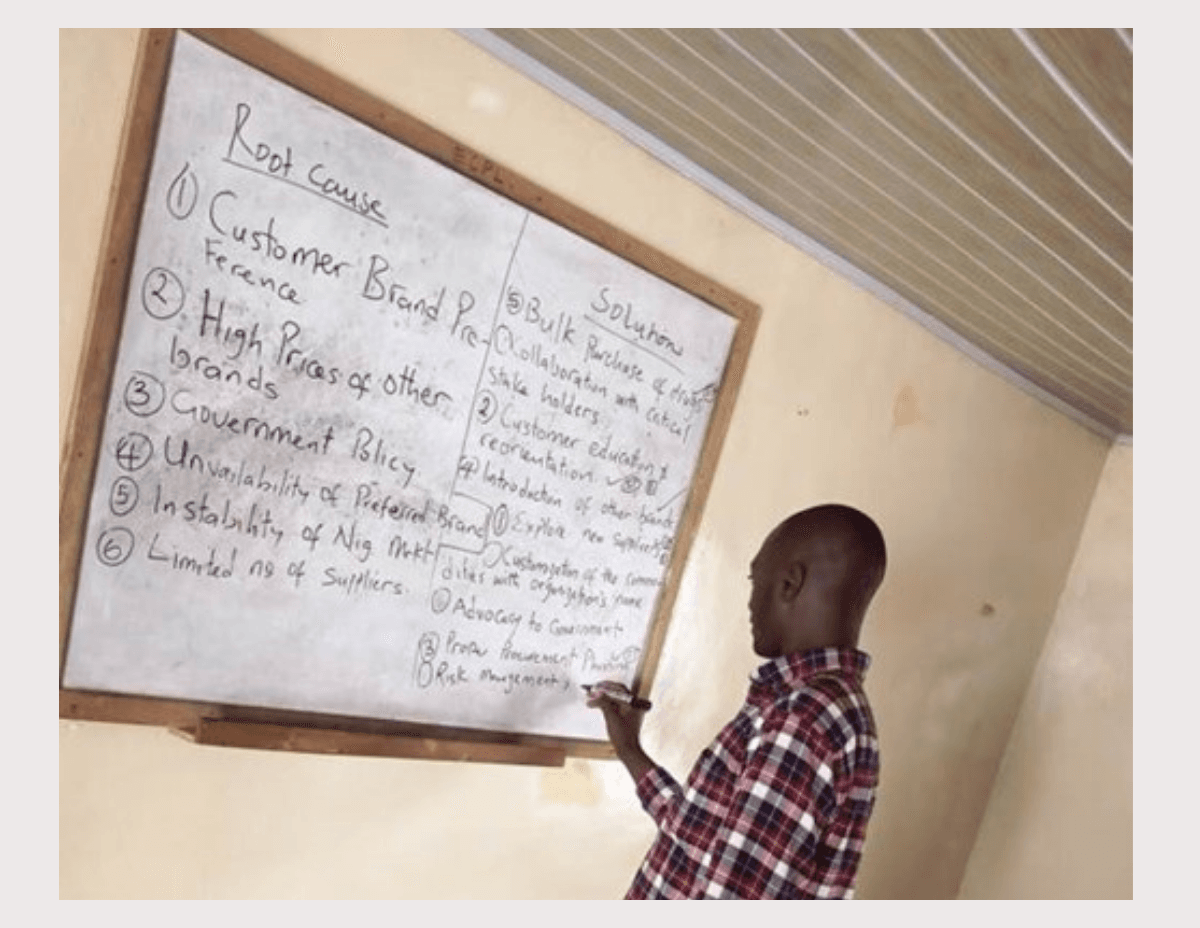 ECPL.
Root Cause
① Customer Brand Pre-
Ference
② High Prices of other
brands
③ Government Policy
④ Unvailability of Preferred Brand
⑤ Instability of Nig Mrkt
⑥ Limited no of Suppliers.
Solutions
⑤ Bulk Purchase of drugs
Collaboration with Critical
Stake holders.
② Customer education &
reorientation.
④ Introduction of other brands
① Explore new suppliers
Customization of the commo
dites with organization's name
Advocacy to Government
③ Proper Procurement Planning
Risk Management,